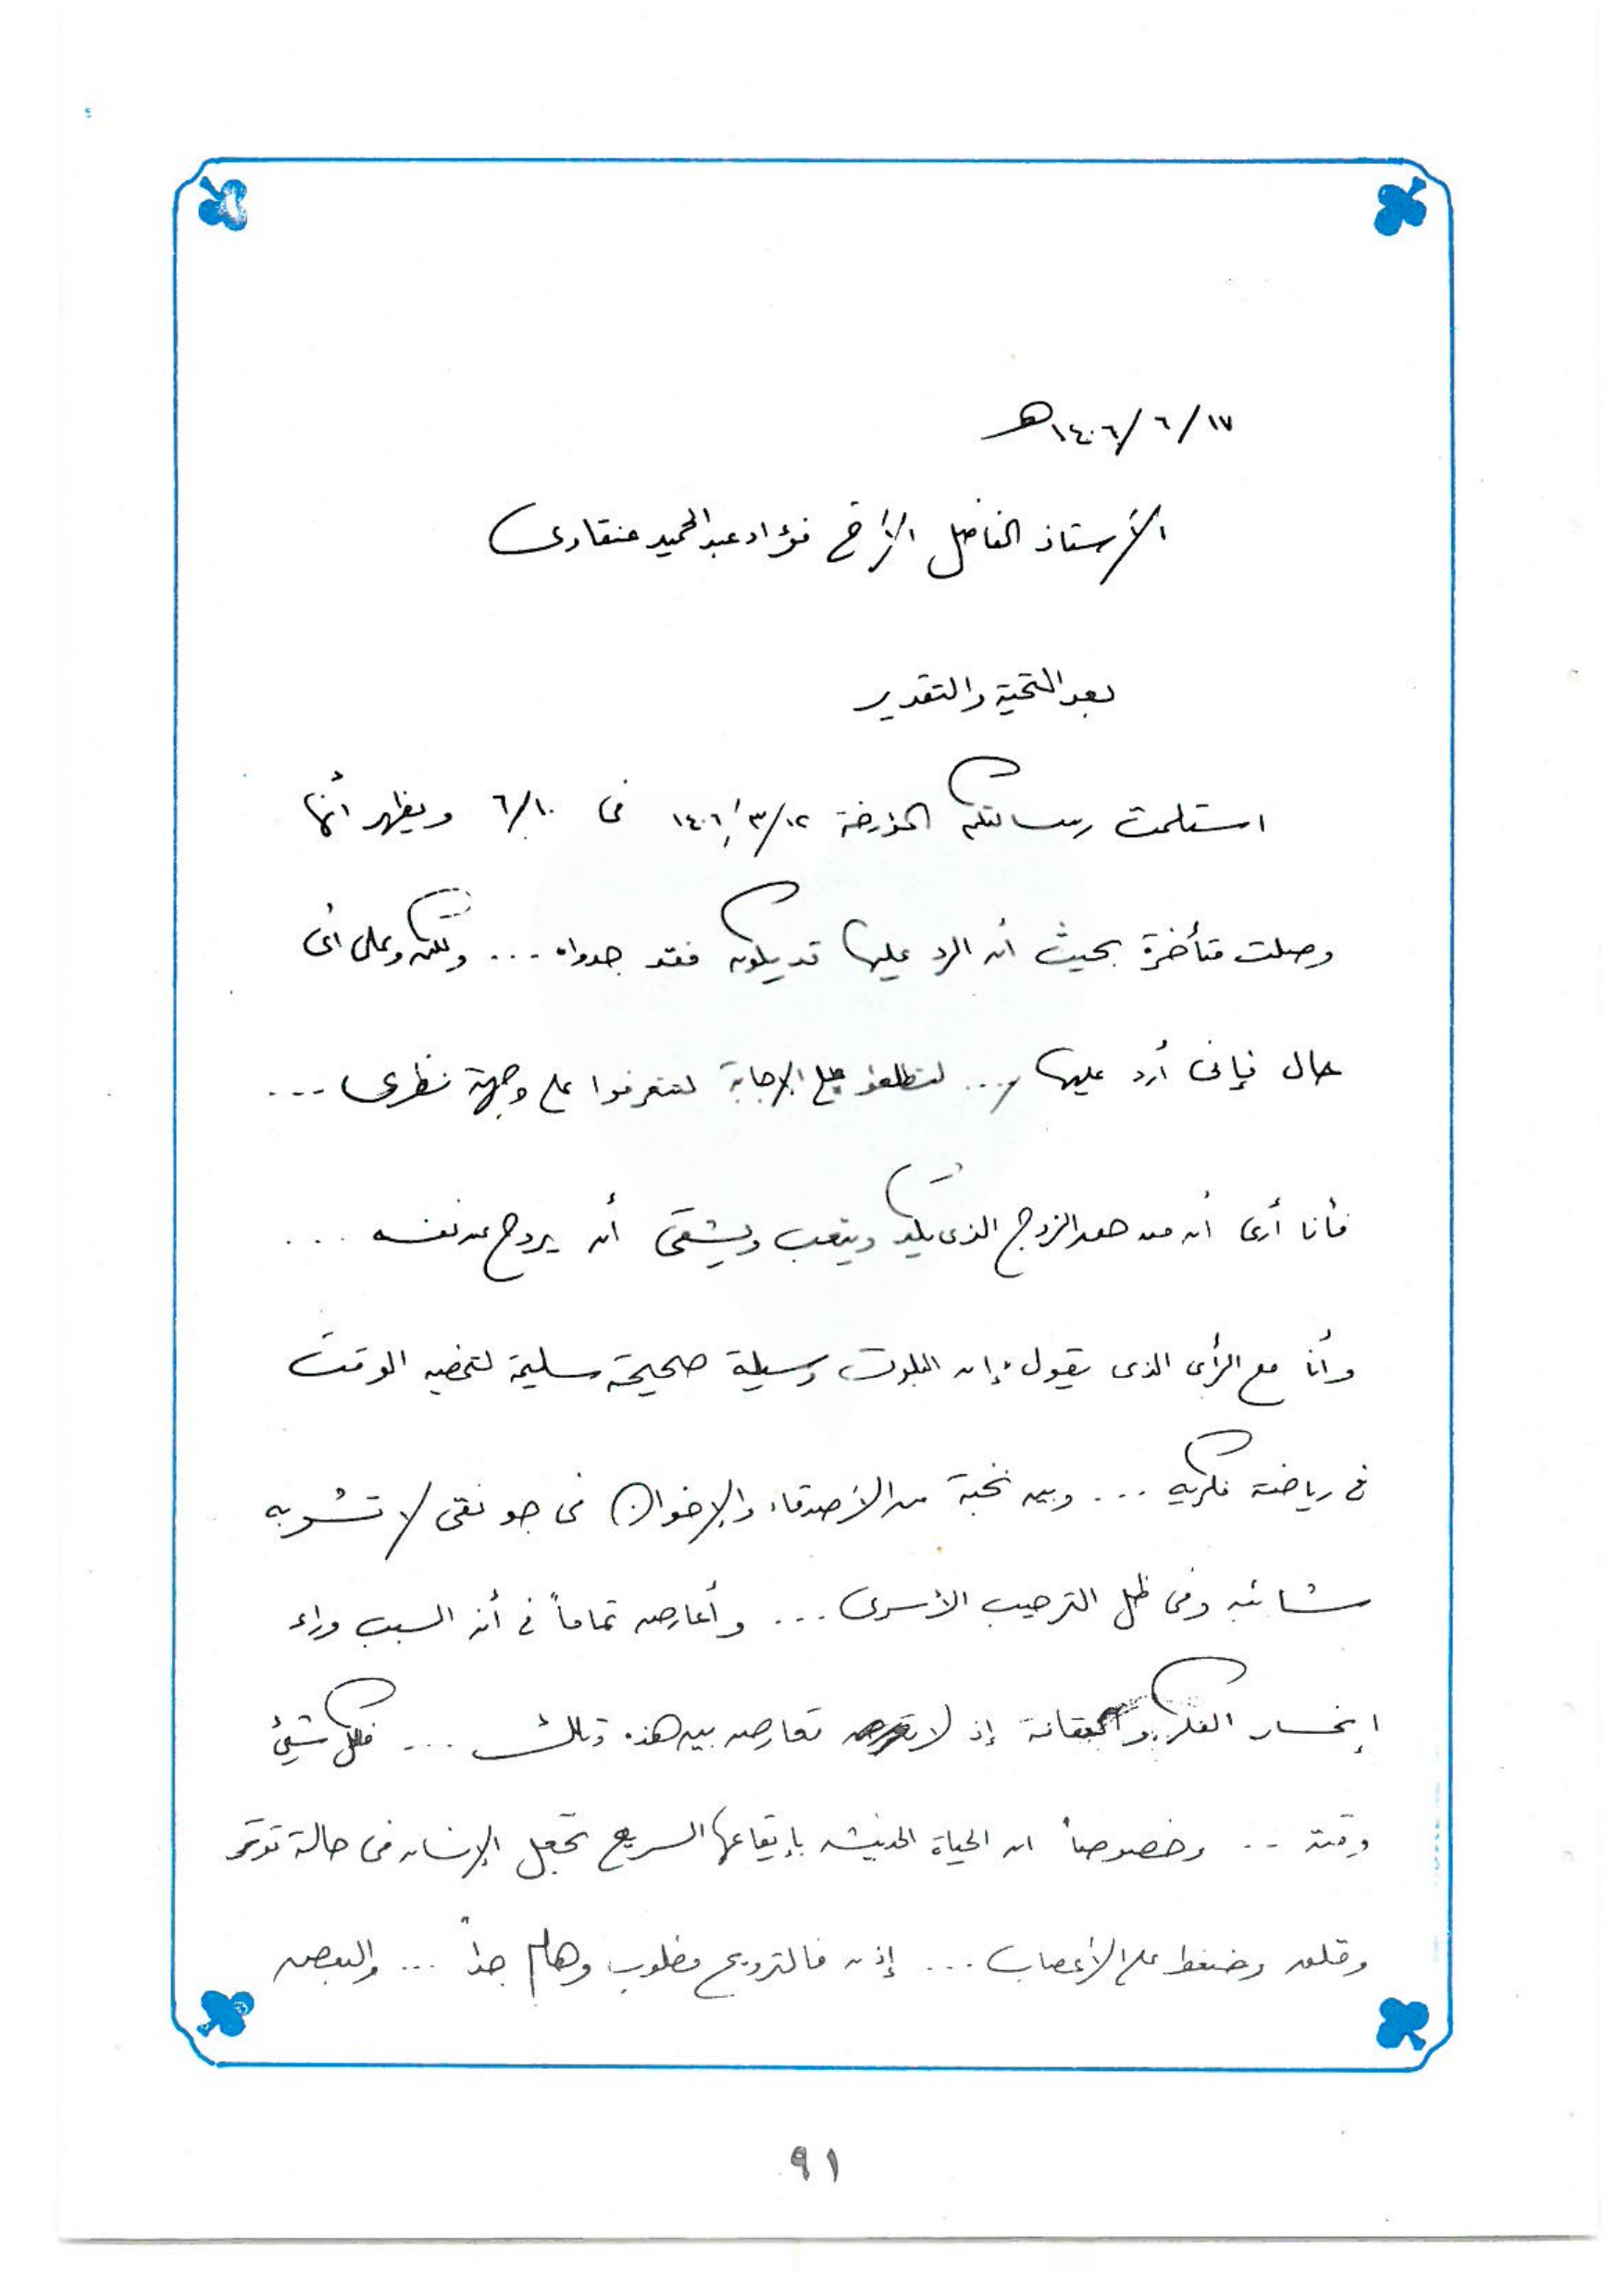 ١٧/ ٦ /١٤٠٦هـ
الأستاذ الفاضل الأخ فؤاد عبدالحميد عنقاوى
بعد التحية والتقدير
استلمت رسالتكم المؤرخة ١٤٠٦/٣/١٢ فى ٦/١٠ ويظهر أنها
وصلت متأخرة بحيث أن الرد عليها قد يكون فقد جدواه ... ولكن وعلى أى
حال فإنى أرد عليها ... لتطلعوا على الإجابة لتتعرفوا على وجهة نظرى ...
فأنا أرى أن من حق الزوج الذى يكد ويتعب ويشقى أن يروح عن نفسه ...
وأنا مع الرأى الذى يقول: إن البلوت وسيلة صحيحة سليمة لتمضيه الوقت
فى رياضة فكريه ... وبين نخبة من الأصدقاء والإخوان فى جو نقى لا تشوبه
شائبه وفى ظل الترحيب الأسرى ... وأعارض تماماً فى أنه السبب وراء
إنحسار الفكر والثقافة إذ لا تعارض بين هذه وتلك ... فلكل شيئ
وقته .. وخصوصاً ان الحياة الحديثه بإيقاعها السريع تجعل الإنسان فى حالة توتر
وقلق وضغط على الأعصاب ... إذن فالترويح مطلوب وهام جداً ... والبعض
٩١